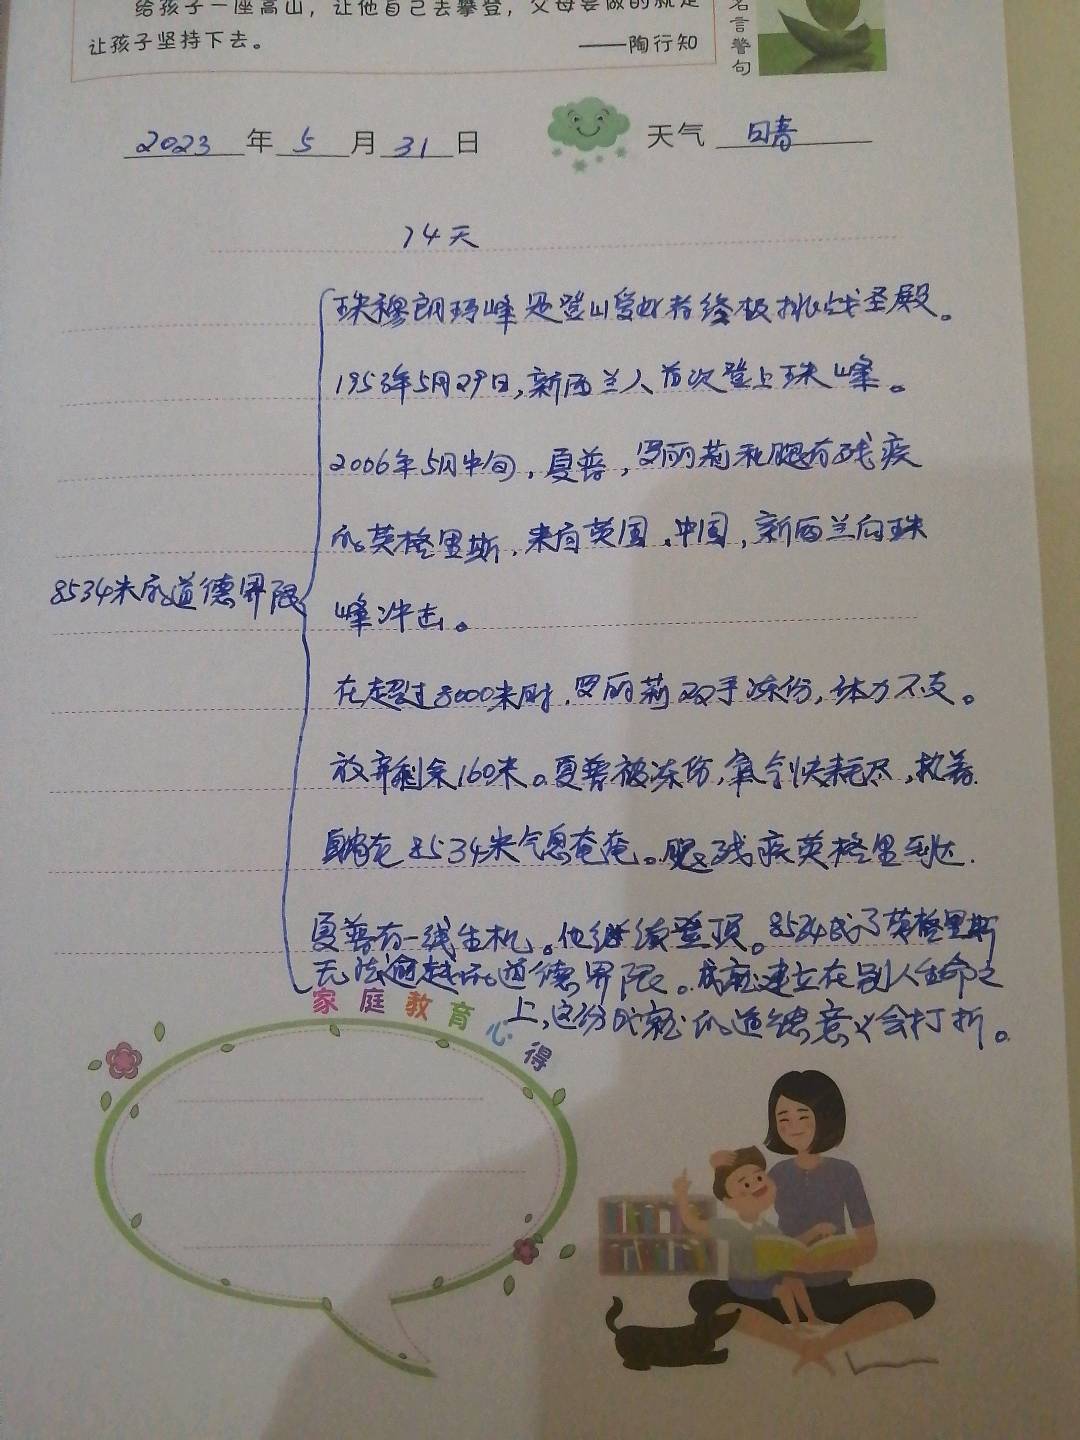 给孩子一座高山，让他自己去攀登，父母要做的就是
让孩子坚持下去。
——陶行知
名言警句
2023年5月31日 天气 晴
74天
珠穆朗玛峰是登山爱好者终极挑战圣殿。
1953年5月29日,新西兰人首次登上珠峰。
2006年5月中旬,夏普,罗丽莉和腿有残疾
的英格里斯,来自英国、中国,新西兰向珠
峰冲击。
8534米的道德界限
在超过8000米时,罗丽莉双手冻伤,体力不支。
放弃剩余160米。夏普被冻伤,氧气快耗尽,
在8534米气息奄奄。腿残疾英格里到达.
夏普有一线生机。他继续登顶。8534成了英格里斯
无法逾越的道德界限。成就建立在别人生命之
上,这份成就的道德意义会打折。
家庭教育心得